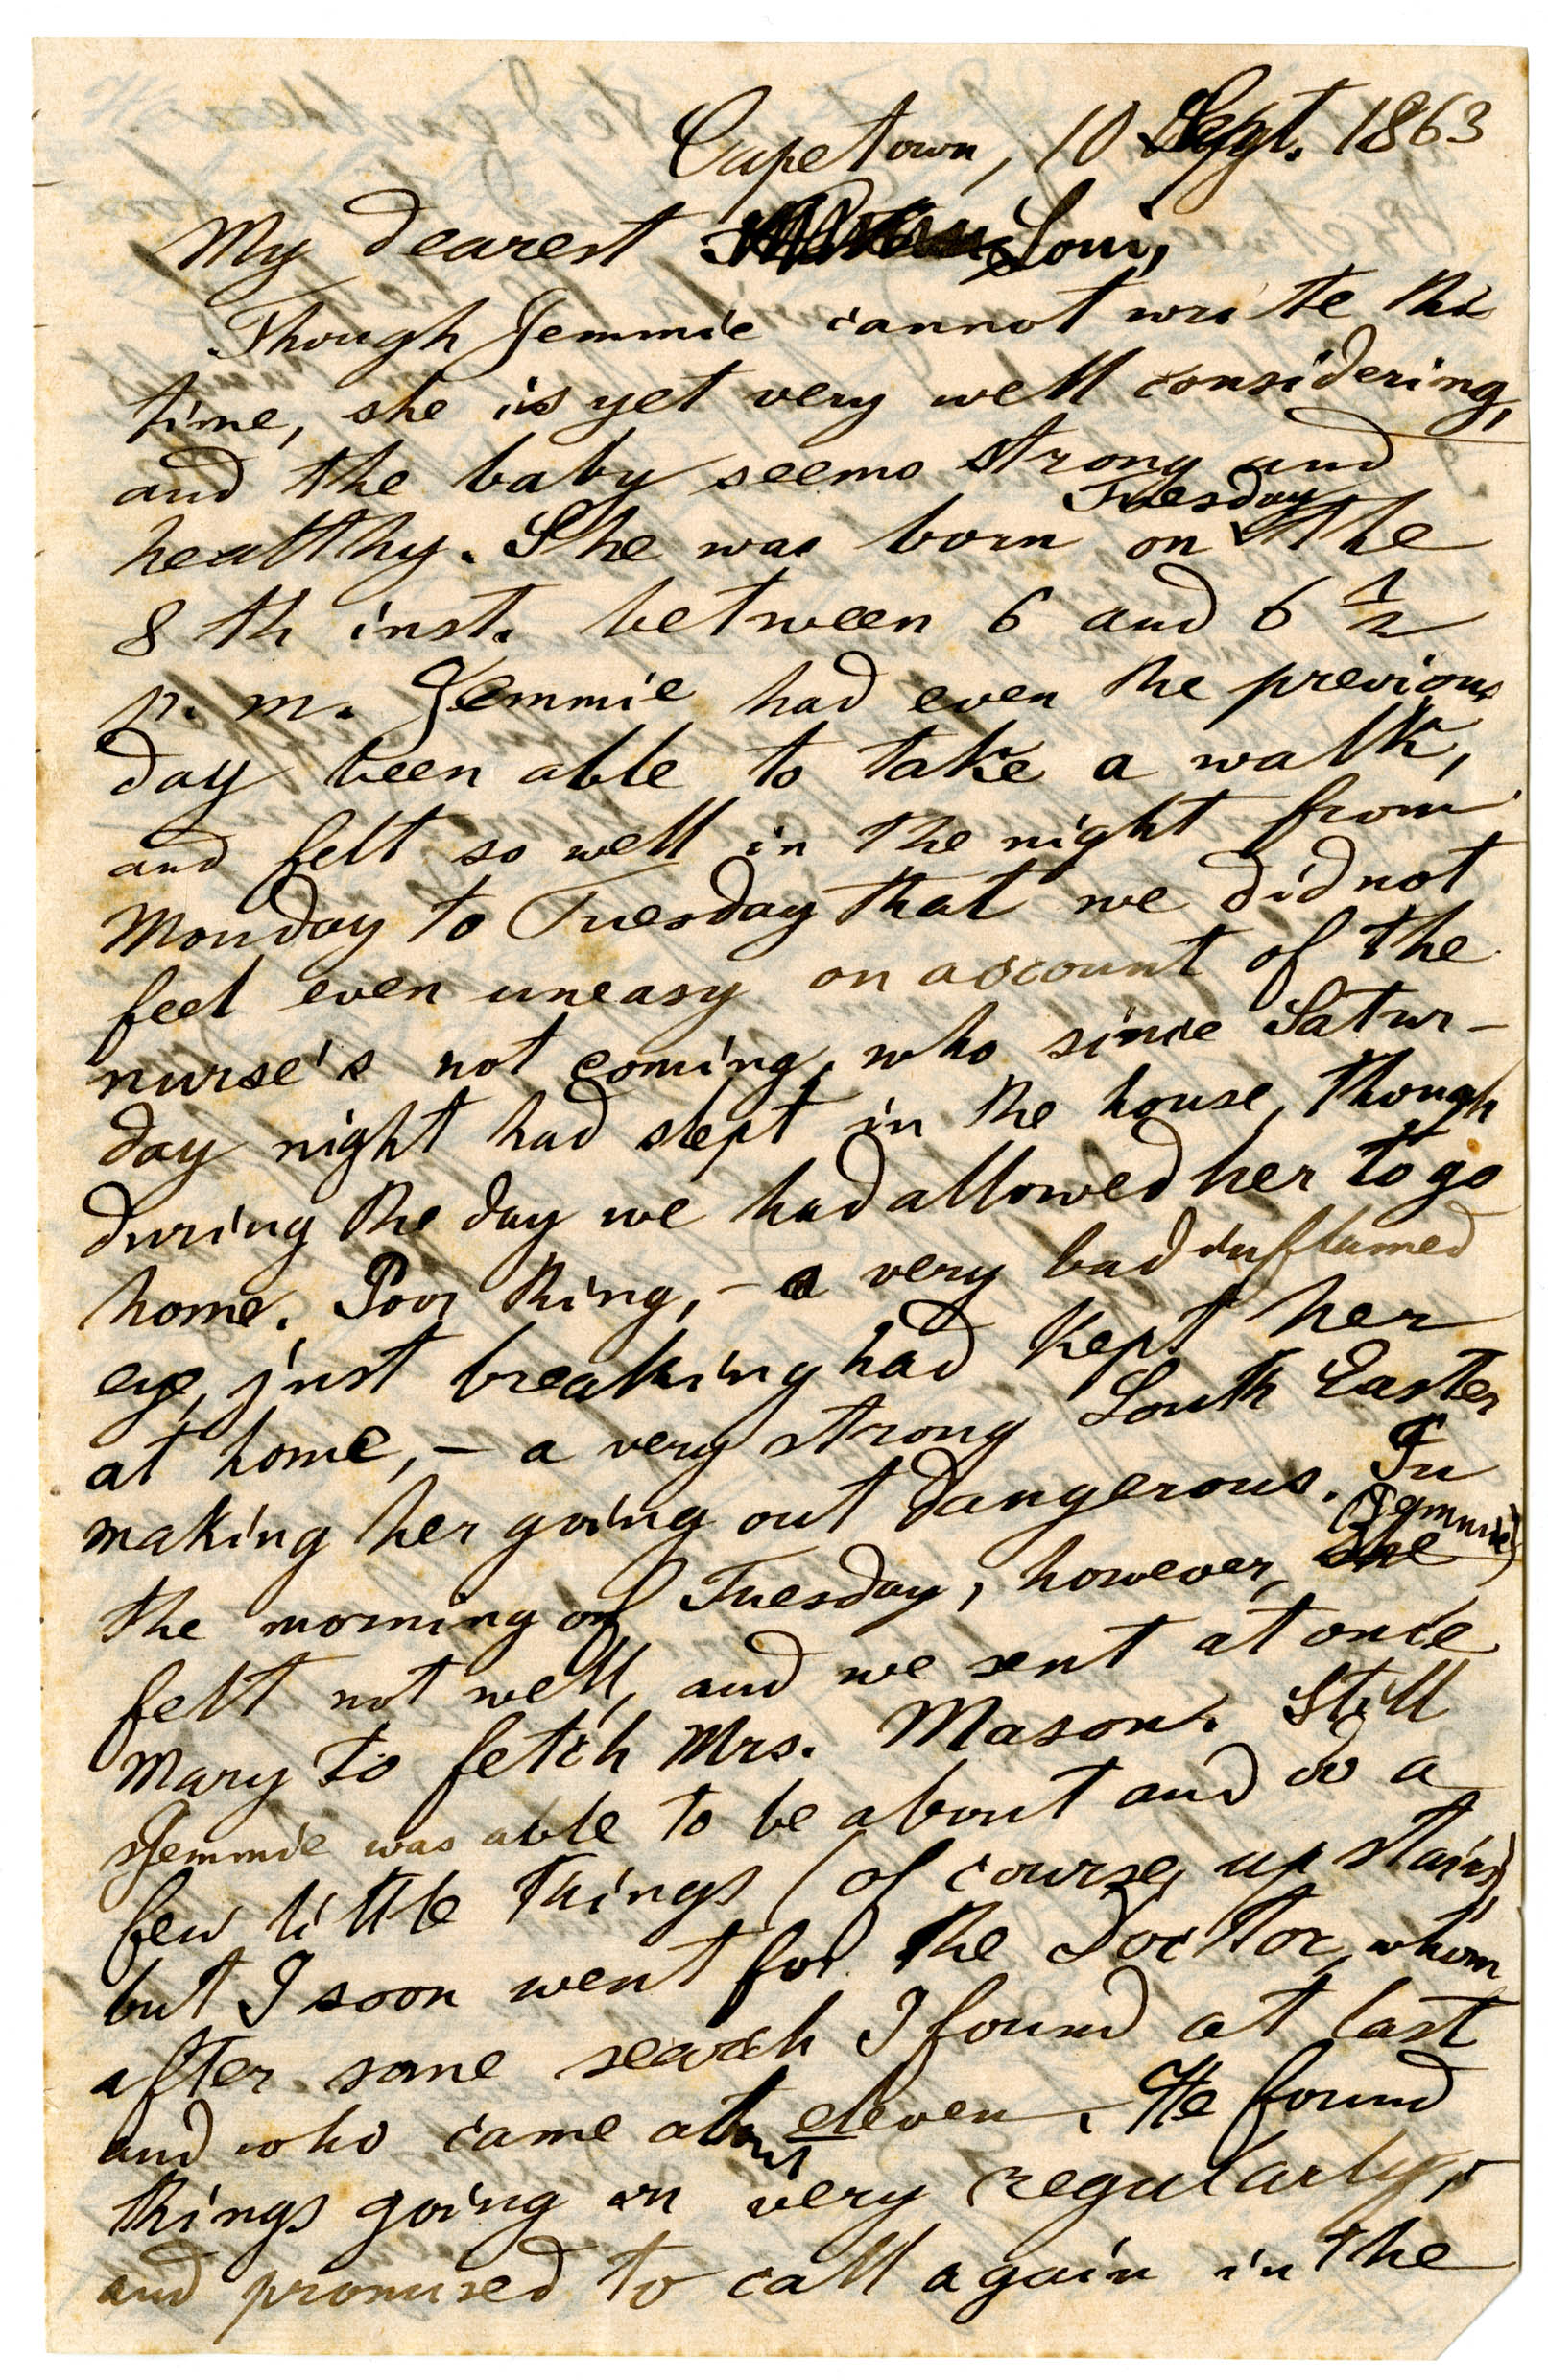 Capetown, 10 Sept. 1863
My dearest Loui,
Though Jemmie cannot write this
time, she is yet very well considering,
and the baby seems strong and
healthy. She was born on Tuesday the
8th inst. between 6 and 6 1/2
p. m. Jemmie had even the previous
day been able to take a walk,
and felt so well in the night from
Monday to Tuesday that we did not
feel even uneasy on account of the
nurse's not coming, who since Satur-
day night had slept in the house, though
during the day we had allowed her to go
home. Poor thing, - a very bad inflamed
eye, just breaking had kept her
at home, - a very strong South Easter
making her going out dangerous. In
the morning of Tuesday, however, she (Jemmie)
felt not well, and we sent at once
Mary to fetch Mrs. Mason. Still
Jemmie was able to be about and do a
few little things (of course, up stairs),
but I soon went for the Doctor, whom
after some search I found at last
and who came about eleven. He found
things going on very regularly,
and promised to call again in the